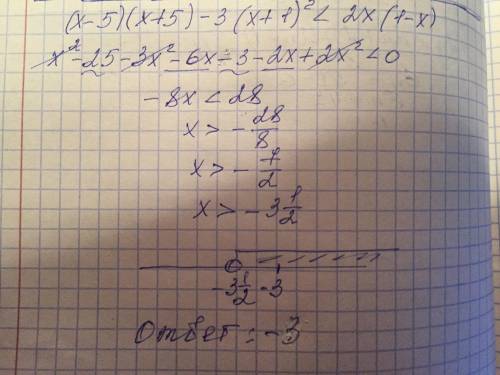 (x-5)(x+5)-3(x+1)² < 2x(1-x)
x²-25-3x²-6x-3-2x+2x²<0
-8x < 28
x > -28/8
x > -7/2
x > -3 1/2
-3 1/2 -3
Ответ: -3